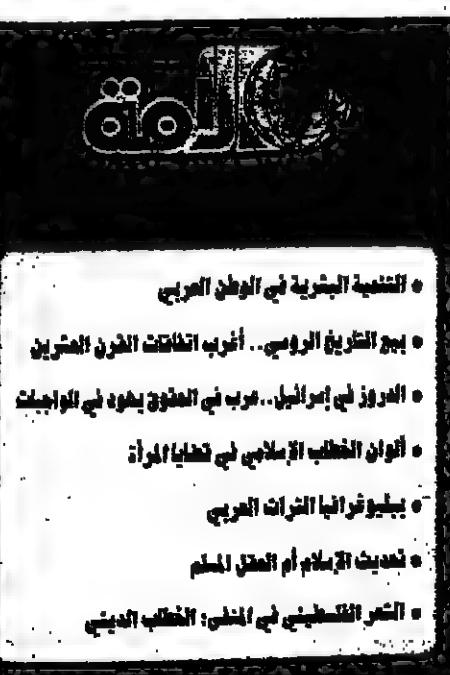 الكلمة
• التنمية البشرية في الوطن العربي
• بيع التاريخ الروسي.. أغرب اتفاقات القرن العشرين
• الدروز في إسرائيل.. عرب في الحقوق يهود في الواجبات
• ألوان الخطاب الإسلامي في قضايا المرأة
• ببليوغرافيا التراث العربي
• تحديث الإسلام أم العقل المسلم
• الشعر الفلسطيني في المنفى: الخطاب الديني